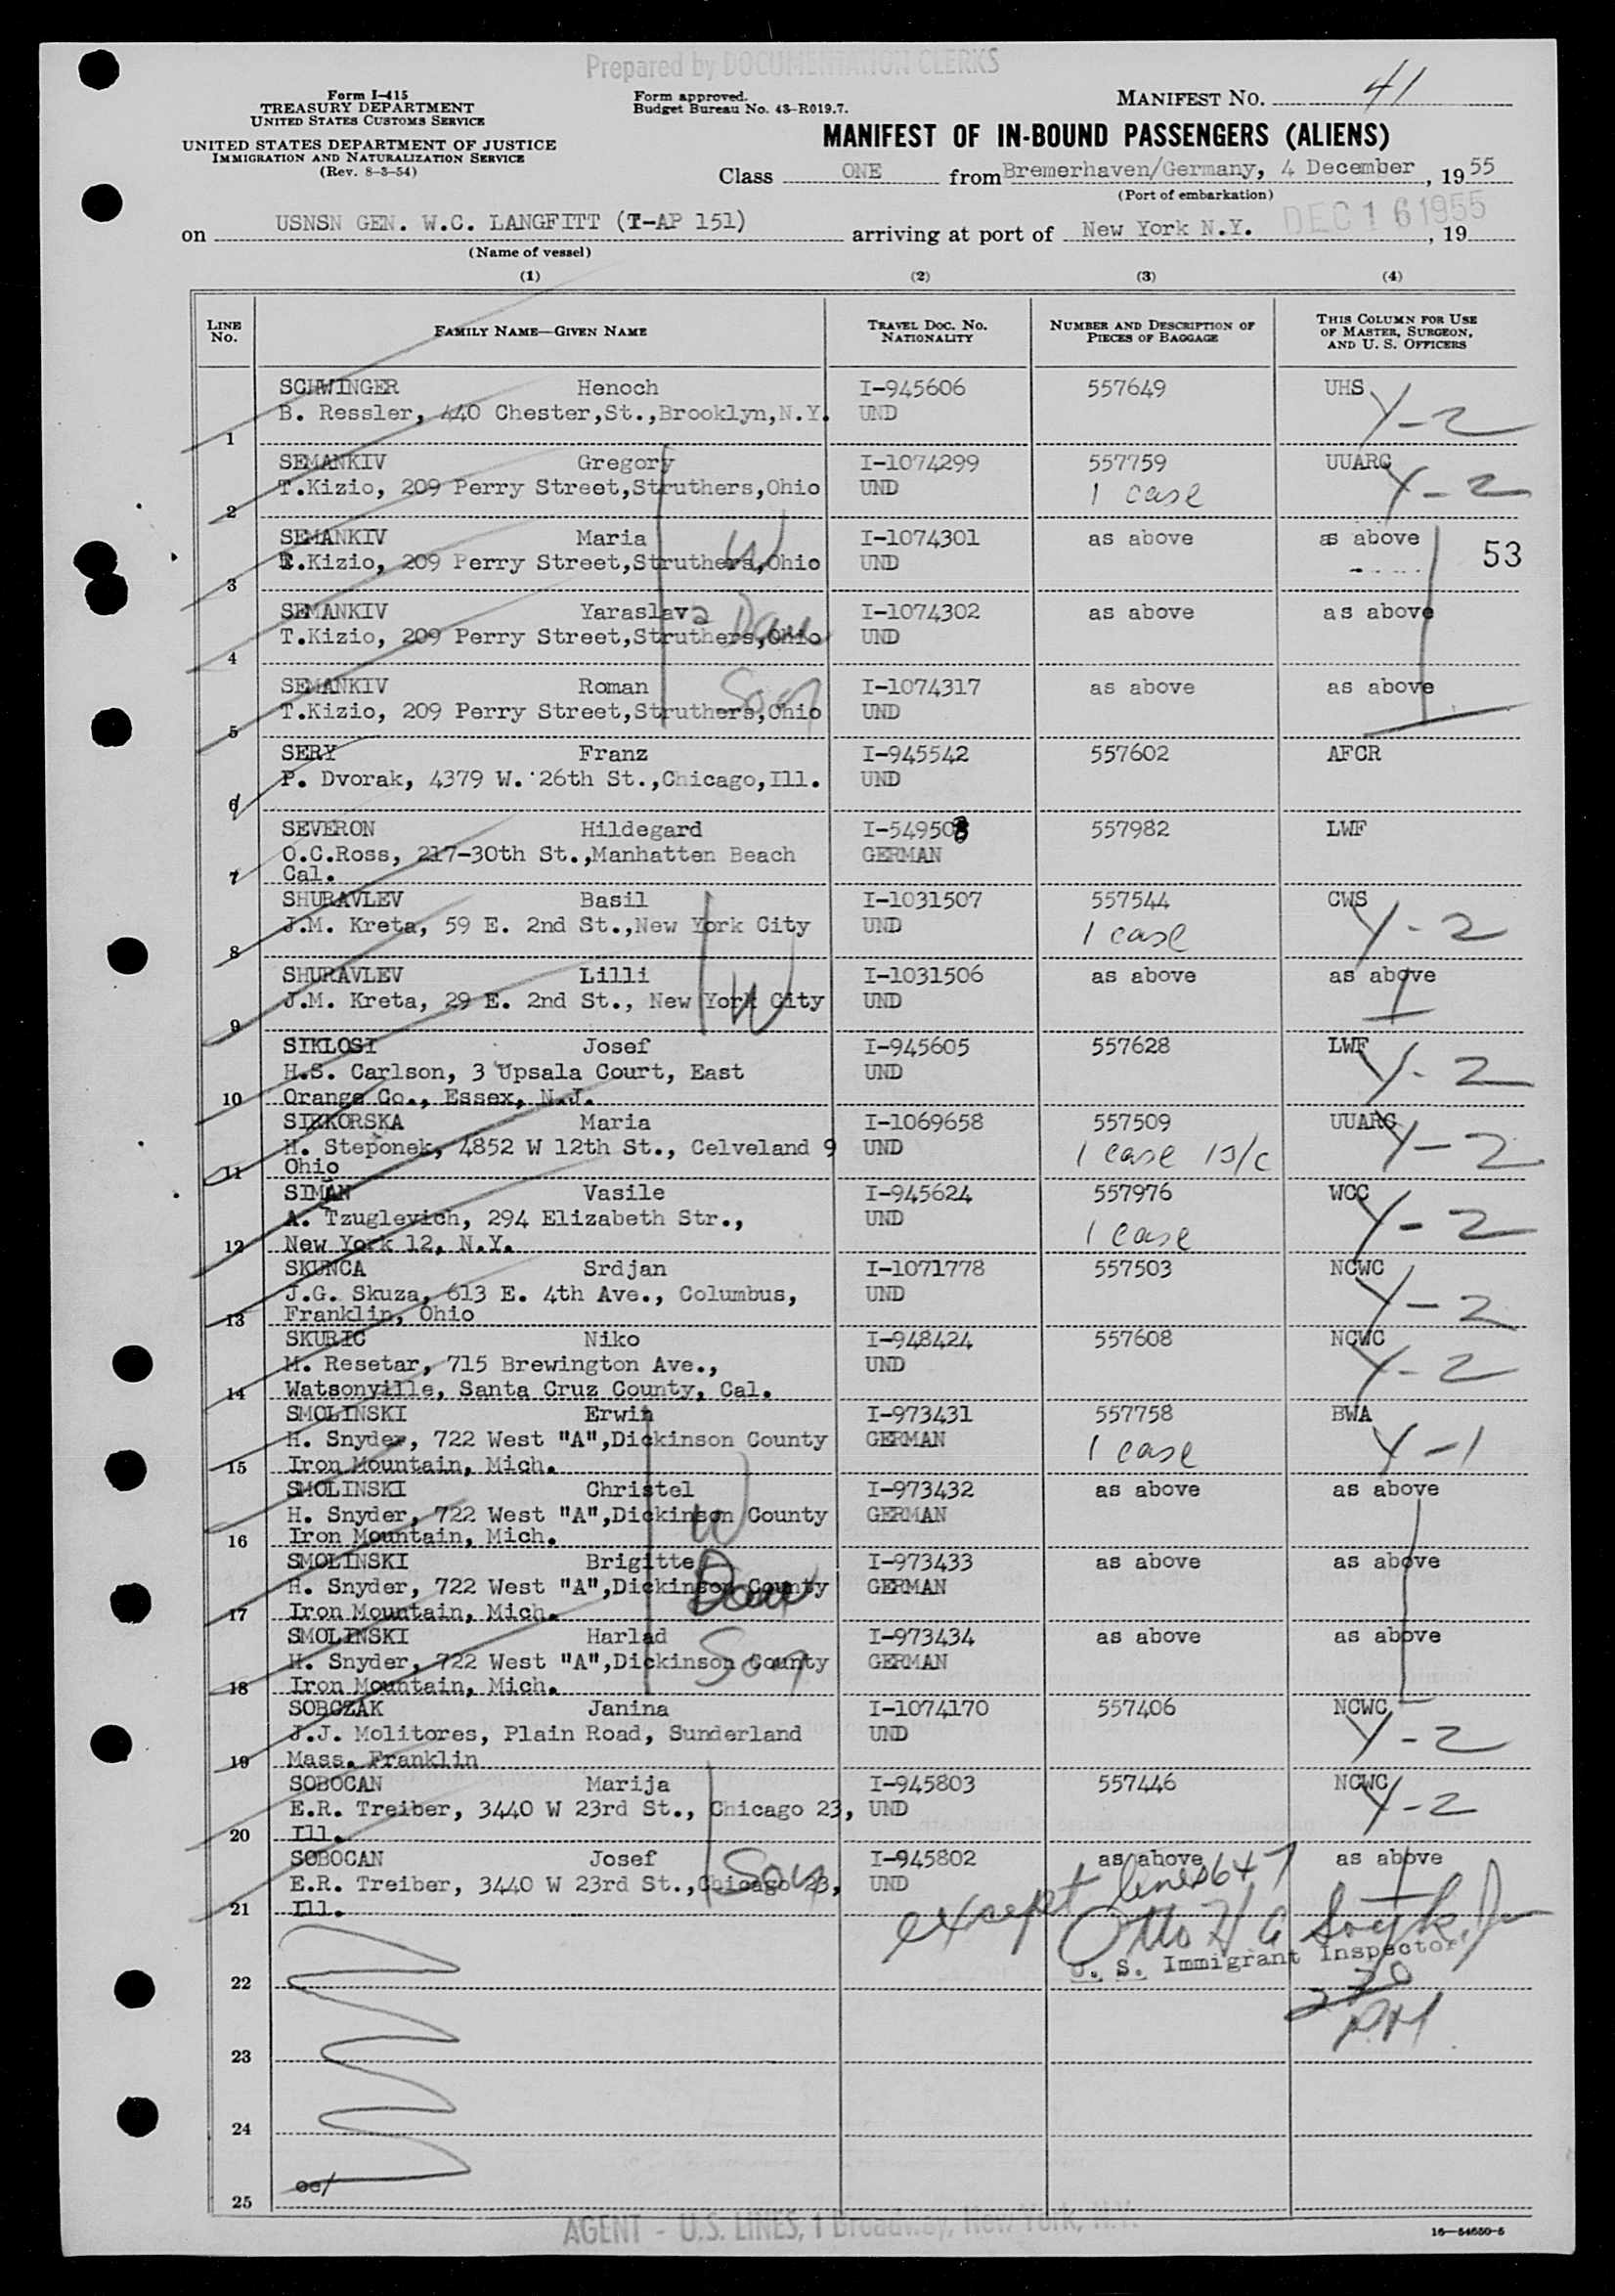 Prepared by DOCUMENTATION CLERKS
Form I-415
TREASURY DEPARTMENT
UNITED STATES CUSTOMS SERVICE
UNITED STATES DEPARTMENT OF JUSTICE
IMMIGRATION AND NATURALIZATION SERVICE
(Rev. 8-3-54)
Form approved.
Budget Bureau No. 43-R019.7.
MANIFEST NO. 41
MANIFEST OF IN-BOUND PASSENGERS (ALIENS)
Class ONE from Bremerhaven/Germany, 4 December, 1955
(Port of embarkation)
on USNSN GEN. W.C. LANGFITT (T-AP 151) arriving at port of New York N.Y. DEC 16 1955, 19
(Name of vessel)
(1) (2) (3) (4)
LINE NO. FAMILY NAME—GIVEN NAME TRAVEL DOC. NO. NATIONALITY NUMBER AND DESCRIPTION OF PIECES OF BAGGAGE THIS COLUMN FOR USE OF MASTER, SURGEON, AND U. S. OFFICERS
SCHWINGER Henoch I-945606 557649 UHS
B. Ressler, 440 Chester,St.,Brooklyn,N.Y. UND Y-2
1
SEMANKIV Gregory I-1074299 557759 UUARC
T.Kizio, 209 Perry Street,Struthers,Ohio UND 1 case Y-2
2
SEMANKIV Maria I-1074301 as above as above
T.Kizio, 209 Perry Street,Struthers,Ohio W UND 53
3
SEMANKIV Yaraslava Dau I-1074302 as above as above
T.Kizio, 209 Perry Street,Struthers,Ohio UND
4
SEMANKIV Roman Son I-1074317 as above as above
T.Kizio, 209 Perry Street,Struthers,Ohio UND
5
SERY Franz I-945542 557602 AFCR
P. Dvorak, 4379 W. 26th St.,Chicago,Ill. UND
6
SEVERON Hildegard I-549508 557982 LWF
O.C.Ross, 217-30th St.,Manhatten Beach GERMAN
7 Cal.
SHURAVLEV Basil I-1031507 557544 CWS
J.M. Kreta, 59 E. 2nd St.,New York City UND 1 case Y-2
8
SHURAVLEV Lilli I-1031506 as above as above
J.M. Kreta, 29 E. 2nd St., New York City W UND
9
SIKLOSI Josef I-945605 557628 LWF
H.S. Carlson, 3 Upsala Court, East UND Y-2
10 Orange Co., Essex, N.J.
SIKKORSKA Maria I-1069658 557509 UUARC
H. Steponek, 4852 W 12th St., Celveland 9 UND 1 case 1S/C Y-2
11 Ohio
SIMAN Vasile I-945624 557976 WCC
A. Tzuglevich, 294 Elizabeth Str., UND 1 case Y-2
12 New York 12, N.Y.
SKUNCA Srdjan I-1071778 557503 NCWC
J.G. Skuza, 613 E. 4th Ave., Columbus, UND Y-2
13 Franklin, Ohio
SKURIC Niko I-948424 557608 NCWC
M. Resetar, 715 Brewington Ave., UND Y-2
14 Watsonville, Santa Cruz County, Cal.
SMOLINSKI Erwin I-973431 557758 BWA
H. Snyder, 722 West "A",Dickinson County GERMAN 1 case Y-1
15 Iron Mountain, Mich.
SMOLINSKI Christel I-973432 as above as above
H. Snyder, 722 West "A",Dickinson County W GERMAN
16 Iron Mountain, Mich.
SMOLINSKI Brigitte I-973433 as above as above
H. Snyder, 722 West "A",Dickinson County Dau GERMAN
17 Iron Mountain, Mich.
SMOLINSKI Harlad I-973434 as above as above
H. Snyder, 722 West "A",Dickinson County Son GERMAN
18 Iron Mountain, Mich.
SOBCZAK Janina I-1074170 557406 NCWC
J.J. Molitores, Plain Road, Sunderland UND Y-2
19 Mass. Franklin
SOBOCAN Marija I-945803 557446 NCWC
E.R. Treiber, 3440 W 23rd St., Chicago 23, UND Y-2
20 Ill.
SOBOCAN Josef I-945802 as above as above
E.R. Treiber, 3440 W 23rd St.,Chicago 23, Son UND
21 Ill.
except lines 6+7
Otto H
U. S. Immigrant Inspector
22
230
PM
23
24
oe/
25
AGENT - U.S. LINES, 1 Broadway, New York, N.Y.
16—54650-5